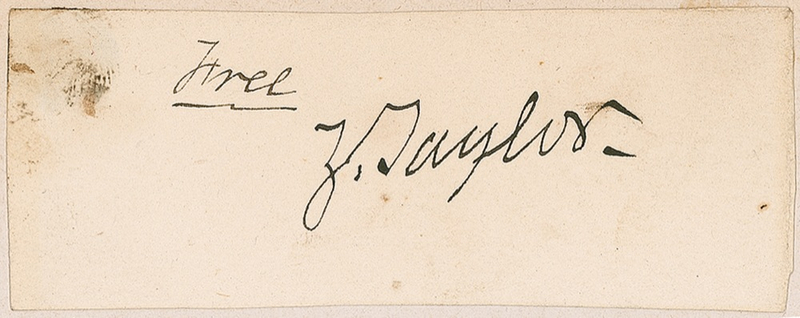 Free
Z. Taylor.